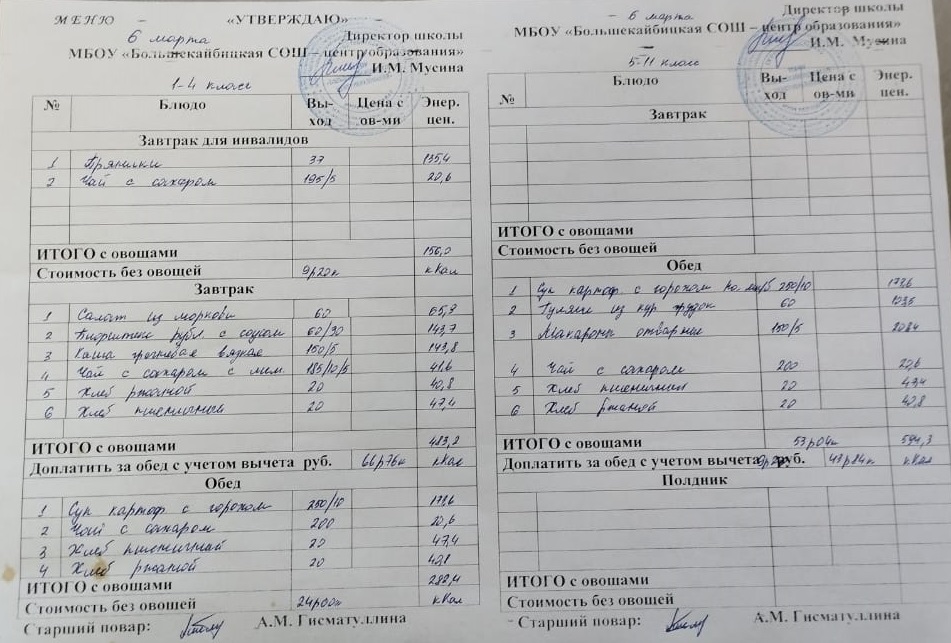 МЕНЮ - «УТВЕРЖДАЮ» -
6 марта Директор школы
МБОУ «Большекайбицкая СОШ – центр образования»
И.М. Мусина
1-4 класс
№ Блюдо Вы-ход Цена с ов-ми Энер. цен.
Завтрак для инвалидов
1 Пряники 37 135,4
2 Чай с сахаром 195/5 20,6
ИТОГО с овощами 156,0
Стоимость без овощей 9р22к кКал
Завтрак
1 Салат из моркови 60 65,9
2 Бифштекс рубл с соусом 60/30 143,7
3 Каша гречневая вязкая 150/5 143,8
4 Чай с сахаром с лим. 185/10/5 41,6
5 Хлеб ржаной 20 40,8
6 Хлеб пшеничный 20 47,4
ИТОГО с овощами 483,2
Доплатить за обед с учетом вычета руб. 66р76к кКал
Обед
1 Суп картоф с горохом 250/10 173,6
2 Чай с сахаром 200 20,6
3 Хлеб пшеничный 20 47,4
4 Хлеб ржаной 20 40,8
ИТОГО с овощами 282,4
Стоимость без овощей 24р00к кКал
Старший повар: А.М. Гисматуллина
- 6 марта Директор школы
МБОУ «Большекайбицкая СОШ – центр образования»
И.М. Мусина
5-11 класс
№ Блюдо Вы-ход Цена с ов-ми Энер. цен.
Завтрак
ИТОГО с овощами
Стоимость без овощей
Обед
1 Суп картоф с горохом 250/10 173,6
2 Гуляш из кур грудок 60 103,5
3 Макароны отварные 150/5 208,4
4 Чай с сахаром 200 20,6
5 Хлеб пшеничный 20 47,4
6 Хлеб ржаной 20 40,8
ИТОГО с овощами 53р04к 594,3
Доплатить за обед с учетом вычета руб. 43р84к кКал
Полдник
ИТОГО с овощами
Стоимость без овощей
- Старший повар: А.М. Гисматуллина